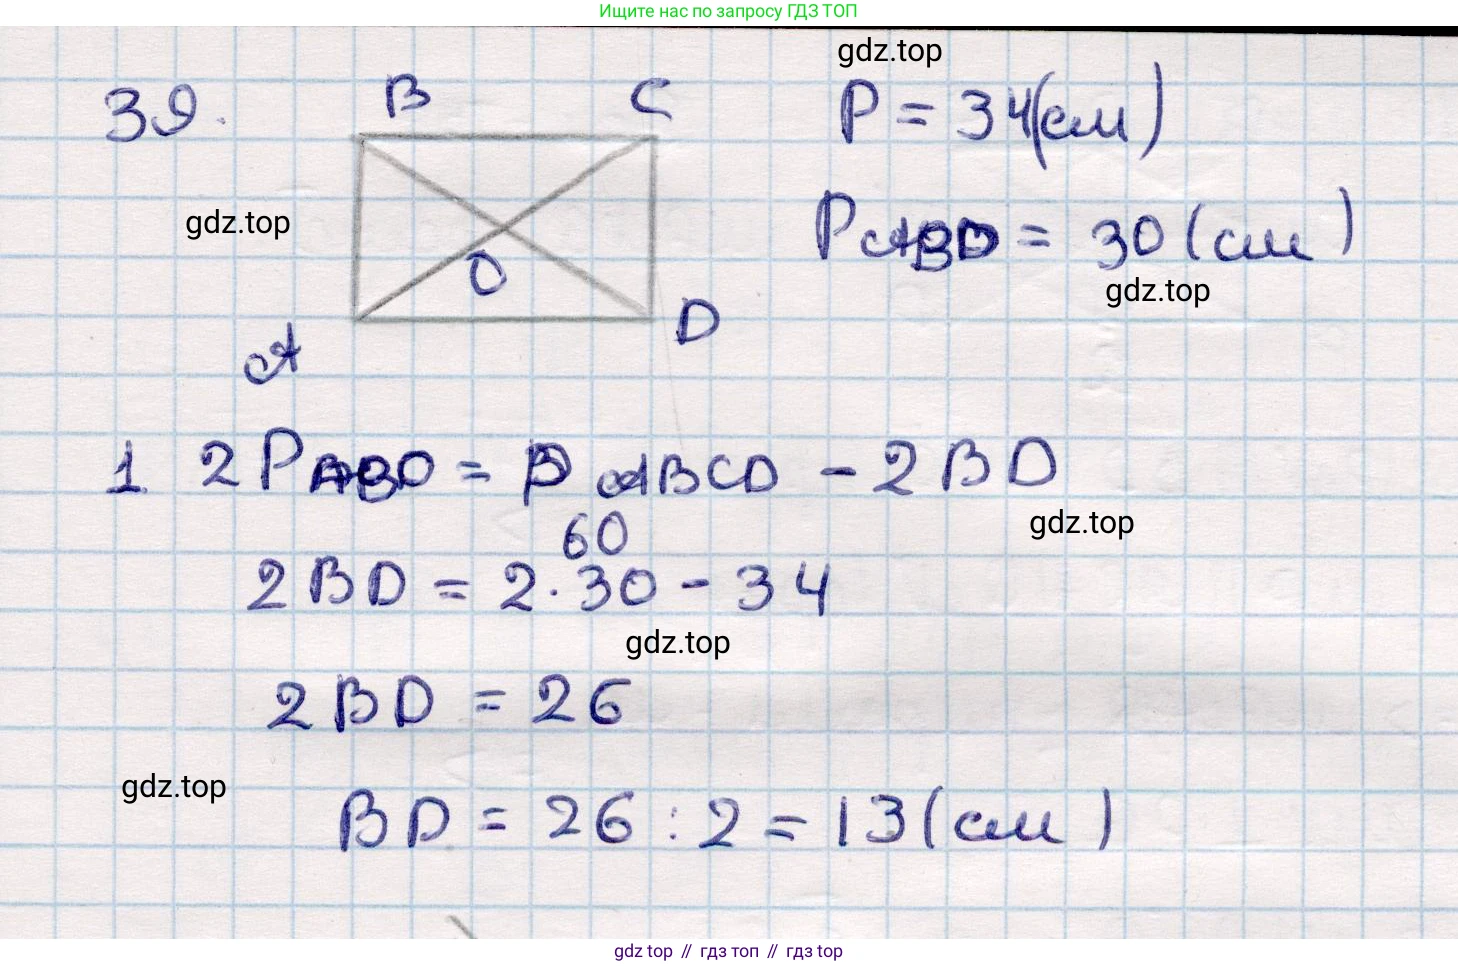 Ищите нас по запросу ГДЗ ТОП
gdz.top
39.
B C
P = 34(см)
gdz.top
P ABD = 30 (см)
gdz.top
O
D
A
1 2P ABD = P ABCD - 2BD
gdz.top
60
2BD = 2·30 - 34
gdz.top
2BD = 26
gdz.top
BD = 26 : 2 = 13 (см)
gdz top // гдз топ // гдз top